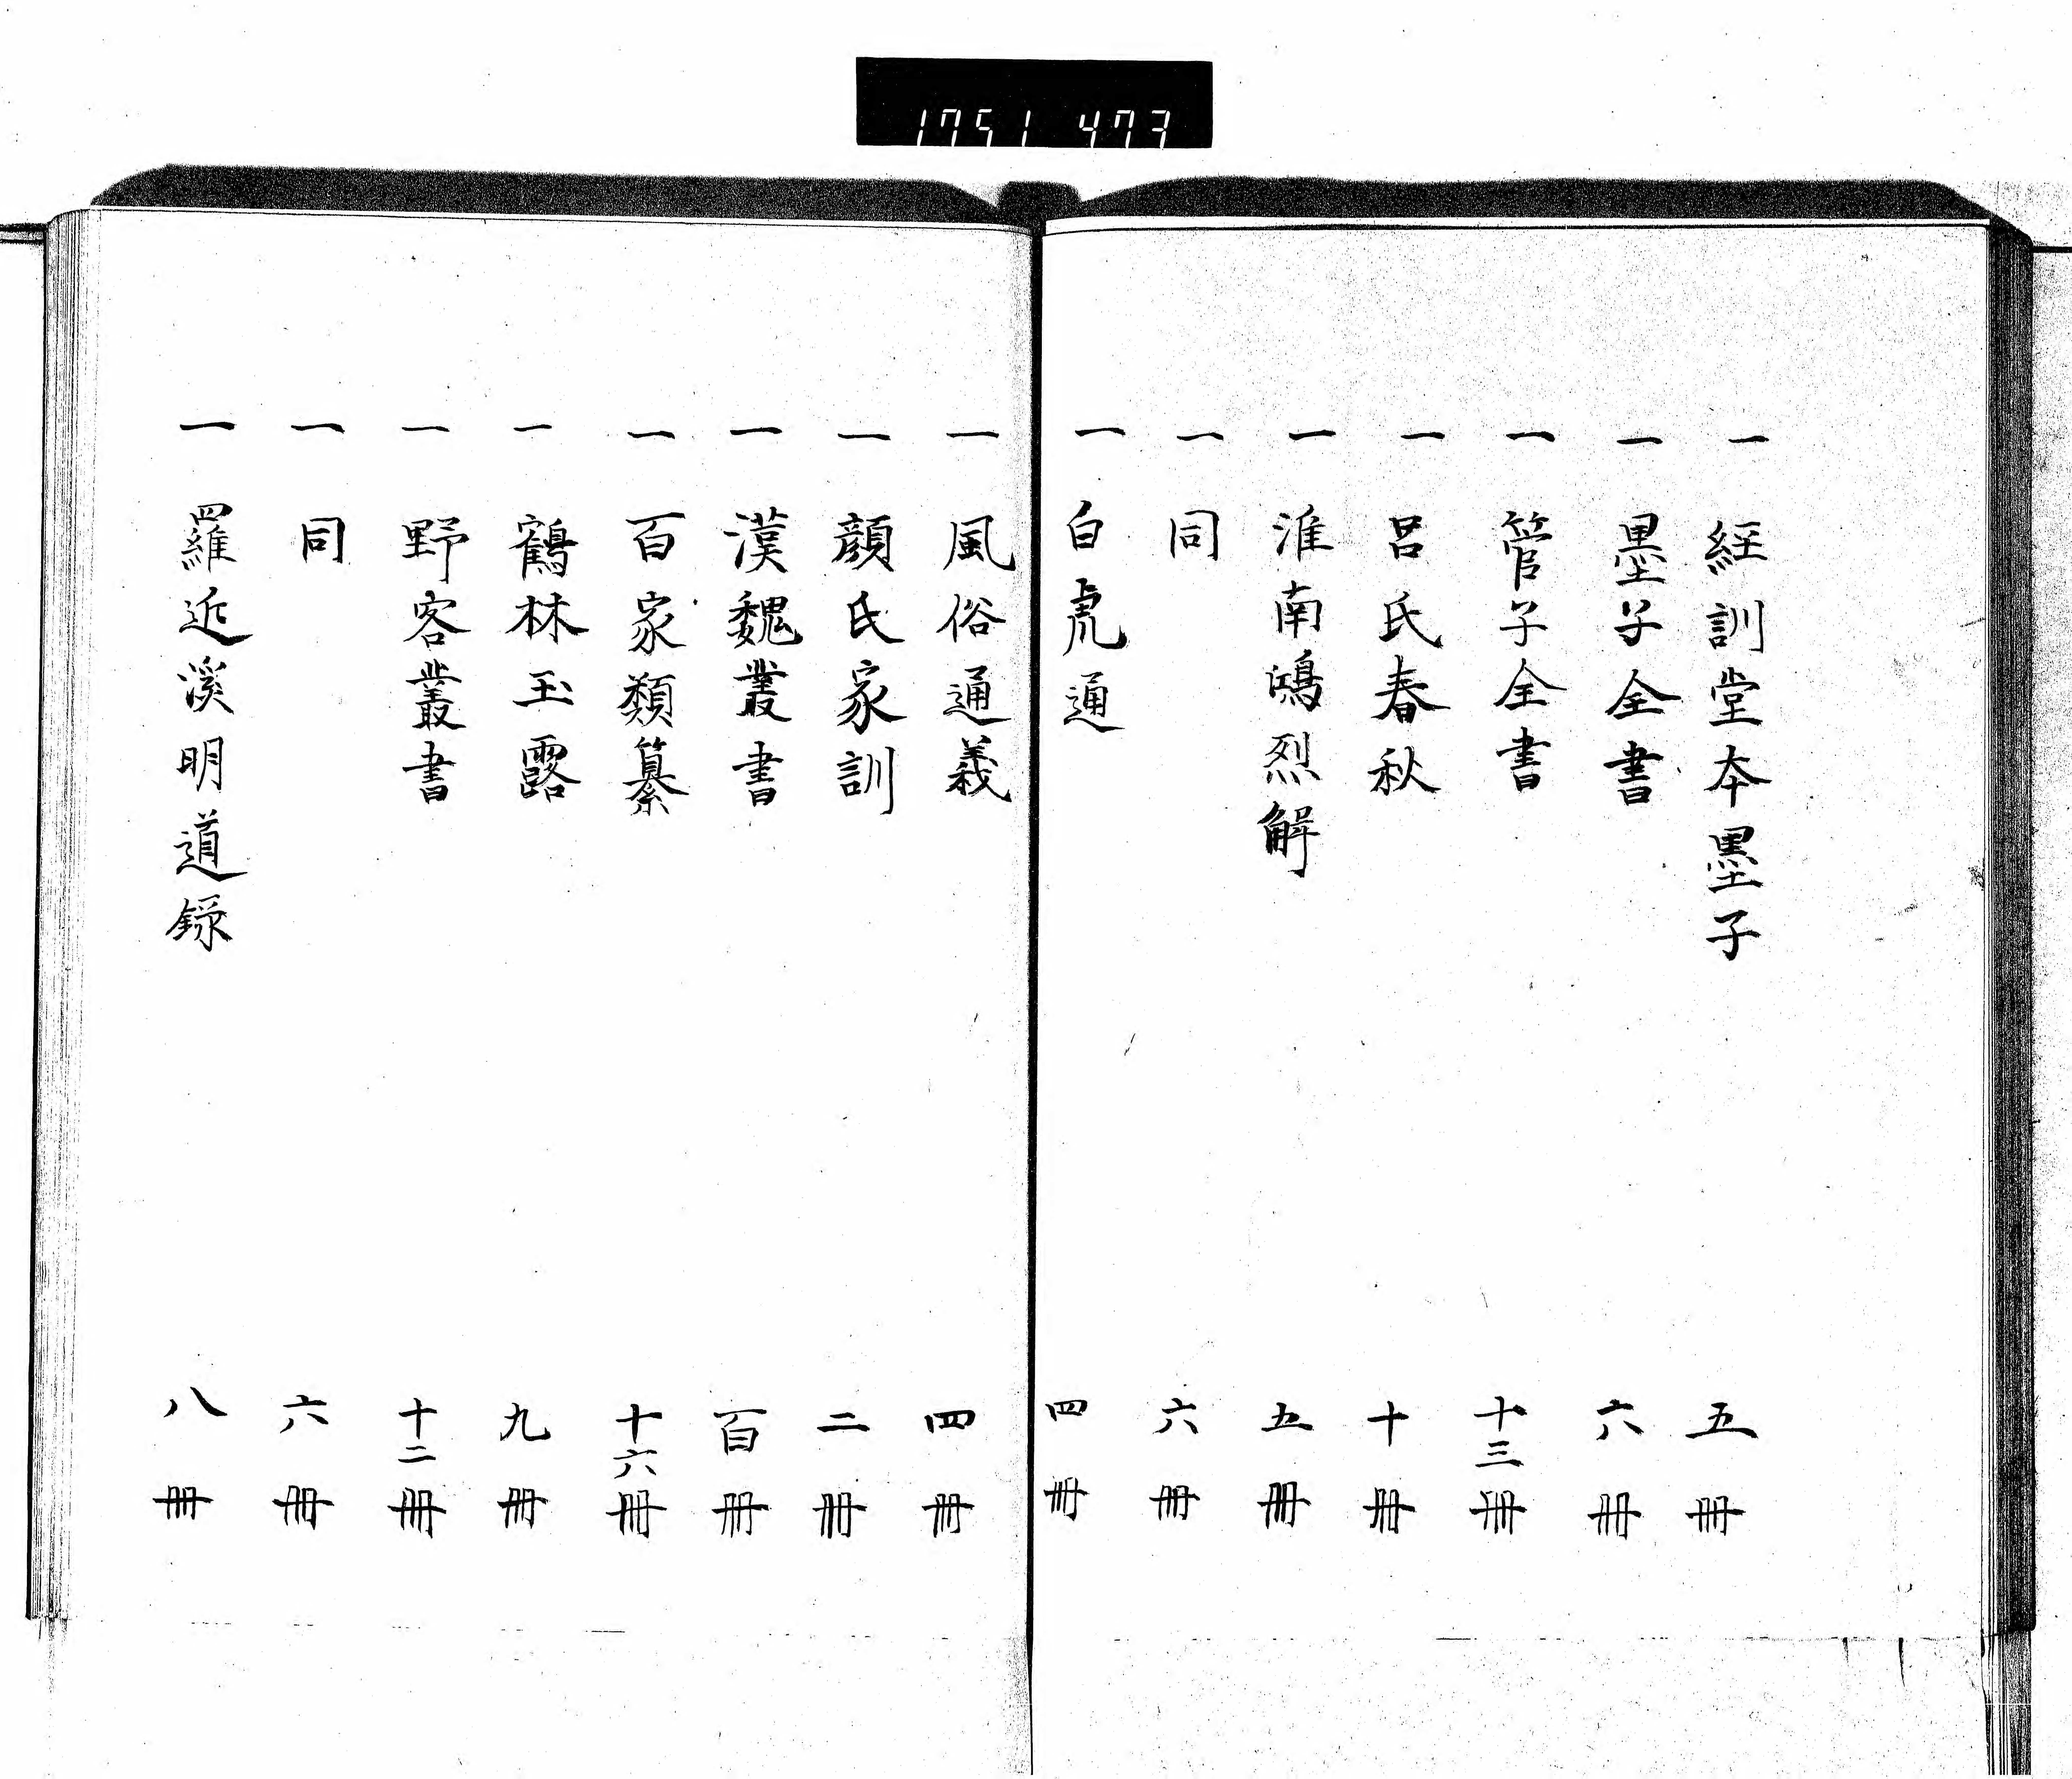 1751 473
一 経訓堂本墨子 五冊
一 墨子全書 六冊
一 管子全書 十三冊
一 呂氏春秋 十冊
一 淮南鴻烈解 五冊
一 同 六冊
一 白虎通 四冊
一 風俗通義 四冊
一 顔氏家訓 二冊
一 漢魏叢書 百冊
一 百家類纂 十六冊
一 鶴林玉露 九冊
一 野客叢書 十二冊
一 同 六冊
一 羅近溪明道録 八冊